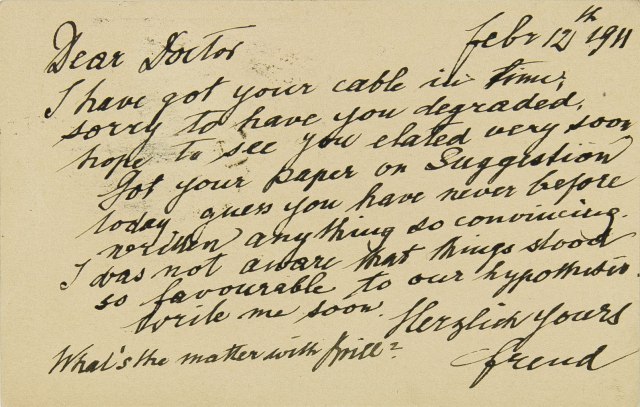 Febr 12th 1911
Dear Doctor
I have got your cable in time,
sorry to have you degraded,
hope to see you elated very soon
Got your paper on Suggestion
today, guess you have never before
written anything so convincing.
I was not aware that things stood
so favourable to our hypothesis
Write me soon. Herzlich yours
Freud
What's the matter with Brill?